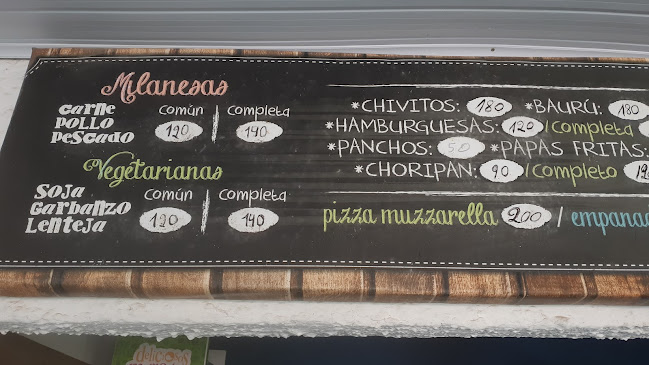 Milanesas
Carne
POLLO
Pescado
Común
Completa
120
190
Vegetarianas
SOJA
Garbanzo
Lenteja
Común
Completa
120
190
*CHIVITOS: 180 *BAURÚ: 180
*HAMBURGUESAS: 120 / completa
*PANCHOS: 50 *PAPAS FRITAS:
*CHORIPÁN: 90 / completo
pizza muzzarella 200 / empanad